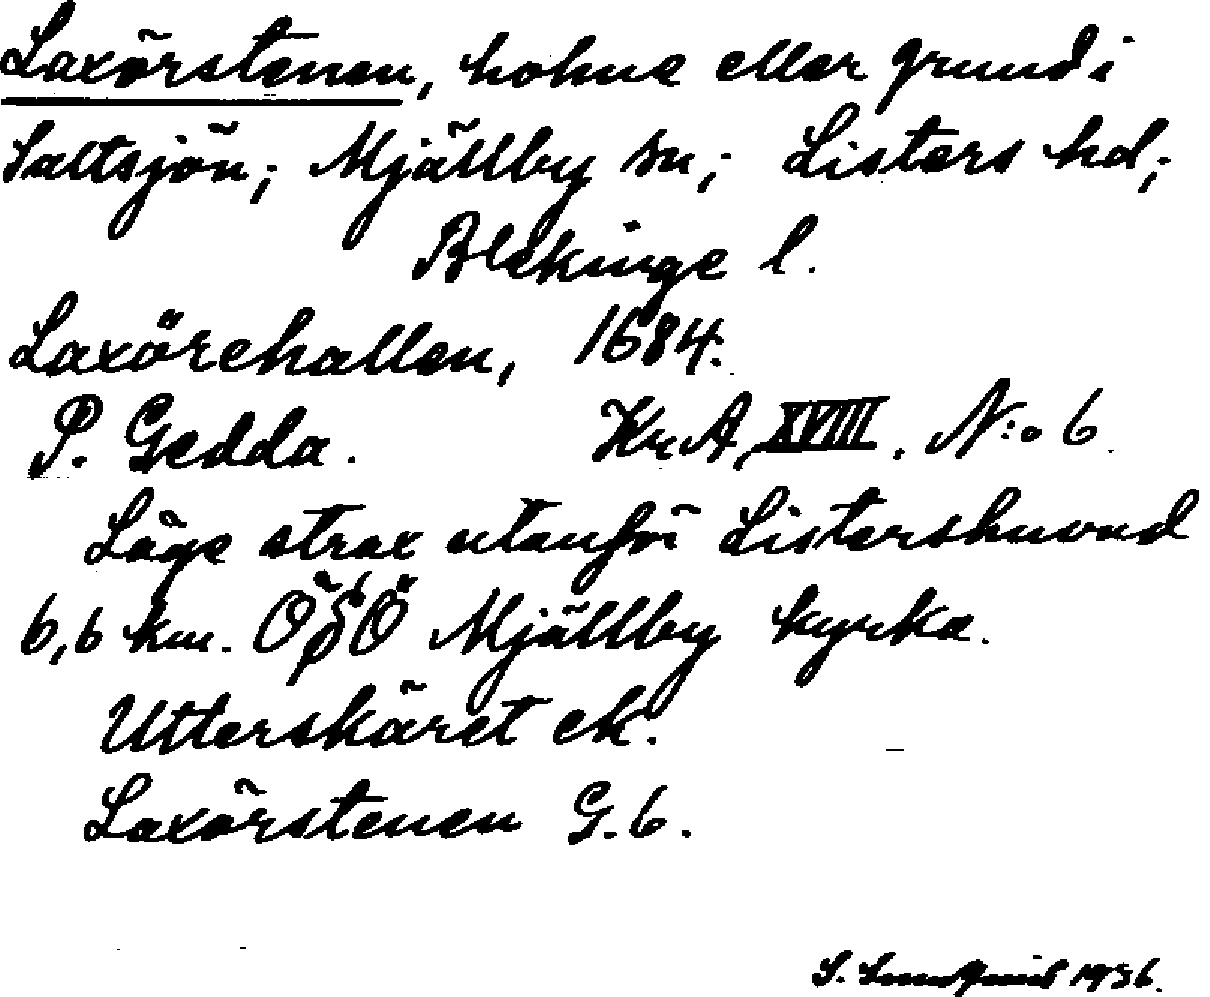 Laxörstenen, holme eller grund i
Saltsjön; Mjällby sn; Listers hd;
Blekinge l.
Laxörehallen, 1684.
P. Gedda. Kr.A. XVIII. N:o 6
Läge strax utanför Listershuvud
6,6 km. ÖSÖ Mjällby kyrka.
Utterskäret ek.
Laxörstenen G.b.
S. 1936.